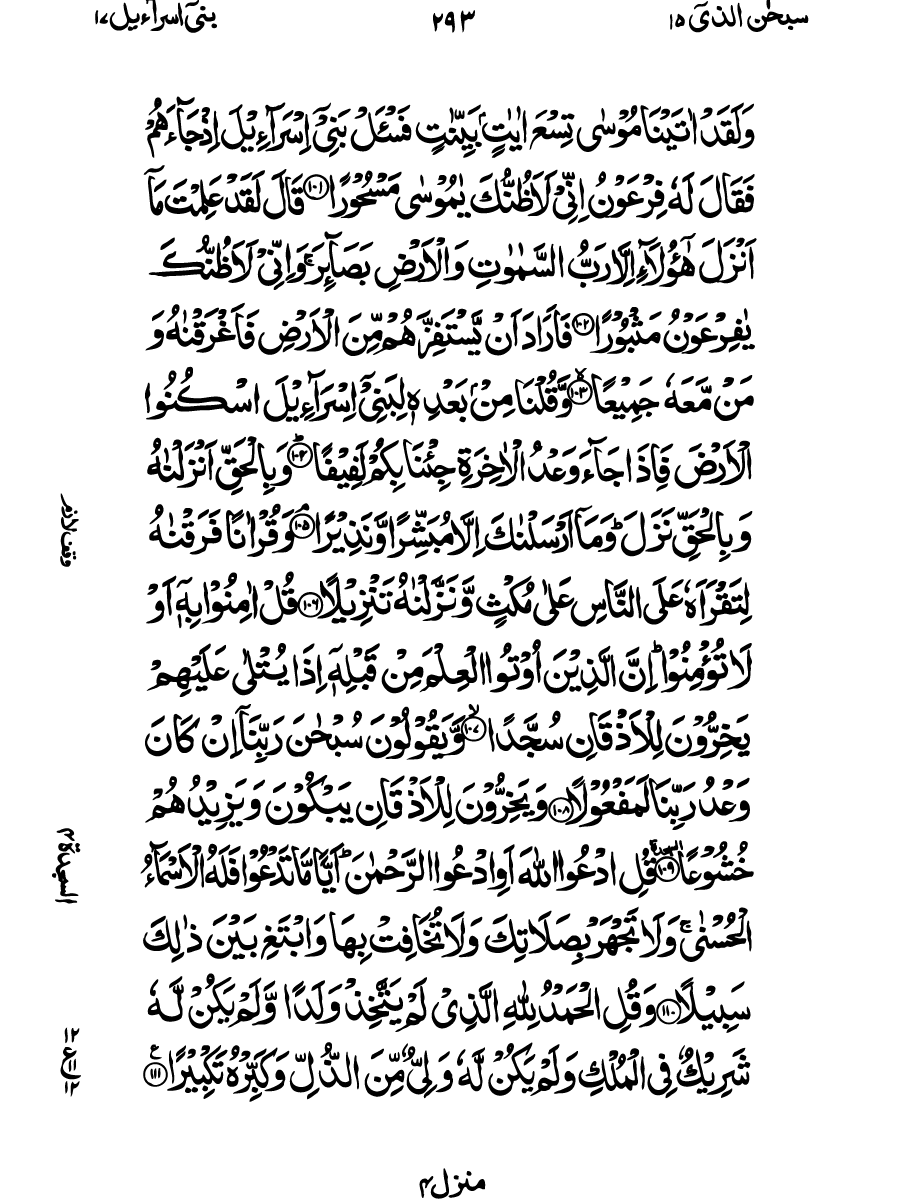 سبحٰن الذیٓ ۱۵
۲۹۳
بنیٓ اسرآءیل ۱۷
وَلَقَدْ اٰتَیْنَا مُوْسٰی تِسْعَ اٰیٰتٍۭ بَیِّنٰتٍ فَسْـَٔلْ بَنِیْۤ اِسْرَآءِیْلَ اِذْ جَآءَهُمْ
فَقَالَ لَهٗ فِرْعَوْنُ اِنِّیْ لَاَظُنُّكَ یٰمُوْسٰی مَسْحُوْرًا ﴿۱۰۱﴾ قَالَ لَقَدْ عَلِمْتَ مَاۤ
اَنْزَلَ هٰۤؤُلَآءِ اِلَّا رَبُّ السَّمٰوٰتِ وَالْاَرْضِ بَصَآئِرَ ۚ وَاِنِّیْ لَاَظُنُّكَ
یٰفِرْعَوْنُ مَثْبُوْرًا ﴿۱۰۲﴾ فَاَرَادَ اَنْ یَّسْتَفِزَّهُمْ مِّنَ الْاَرْضِ فَاَغْرَقْنٰهُ وَ
مَنْ مَّعَهٗ جَمِیْعًا ﴿۱۰۳﴾ۙ وَّقُلْنَا مِنْۢ بَعْدِهٖ لِبَنِیْۤ اِسْرَآءِیْلَ اسْكُنُوا
الْاَرْضَ فَاِذَا جَآءَ وَعْدُ الْاٰخِرَةِ جِئْنَا بِكُمْ لَفِیْفًا ﴿۱۰۴﴾ؕ وَبِالْحَقِّ اَنْزَلْنٰهُ
وَبِالْحَقِّ نَزَلَ ؕ وَمَاۤ اَرْسَلْنٰكَ اِلَّا مُبَشِّرًا وَّنَذِیْرًا ﴿۱۰۵﴾ۘ وَقُرْاٰنًا فَرَقْنٰهُ
لِتَقْرَاَهٗ عَلَی النَّاسِ عَلٰی مُكْثٍ وَّنَزَّلْنٰهُ تَنْزِیْلًا ﴿۱۰۶﴾ قُلْ اٰمِنُوْا بِهٖۤ اَوْ
لَا تُؤْمِنُوْا ؕ اِنَّ الَّذِیْنَ اُوْتُوا الْعِلْمَ مِنْ قَبْلِهٖۤ اِذَا یُتْلٰی عَلَیْهِمْ
یَخِرُّوْنَ لِلْاَذْقَانِ سُجَّدًا ﴿۱۰۷﴾ۙ وَّیَقُوْلُوْنَ سُبْحٰنَ رَبِّنَاۤ اِنْ كَانَ
وَعْدُ رَبِّنَا لَمَفْعُوْلًا ﴿۱۰۸﴾ وَیَخِرُّوْنَ لِلْاَذْقَانِ یَبْكُوْنَ وَیَزِیْدُهُمْ
خُشُوْعًا ﴿۱۰۹﴾ قُلِ ادْعُوا اللّٰهَ اَوِ ادْعُوا الرَّحْمٰنَ ؕ اَیًّا مَّا تَدْعُوْا فَلَهُ الْاَسْمَآءُ
الْحُسْنٰی ۚ وَلَا تَجْهَرْ بِصَلَاتِكَ وَلَا تُخَافِتْ بِهَا وَابْتَغِ بَیْنَ ذٰلِكَ
سَبِیْلًا ﴿۱۱۰﴾ وَقُلِ الْحَمْدُ لِلّٰهِ الَّذِیْ لَمْ یَتَّخِذْ وَلَدًا وَّلَمْ یَكُنْ لَّهٗ
شَرِیْكٌ فِی الْمُلْكِ وَلَمْ یَكُنْ لَّهٗ وَلِیٌّ مِّنَ الذُّلِّ وَكَبِّرْهُ تَكْبِیْرًا ﴿۱۱۱﴾
وقف لازم
السجدة ۴
۱۲
ع ۱۱
۱۲
منزل ۴